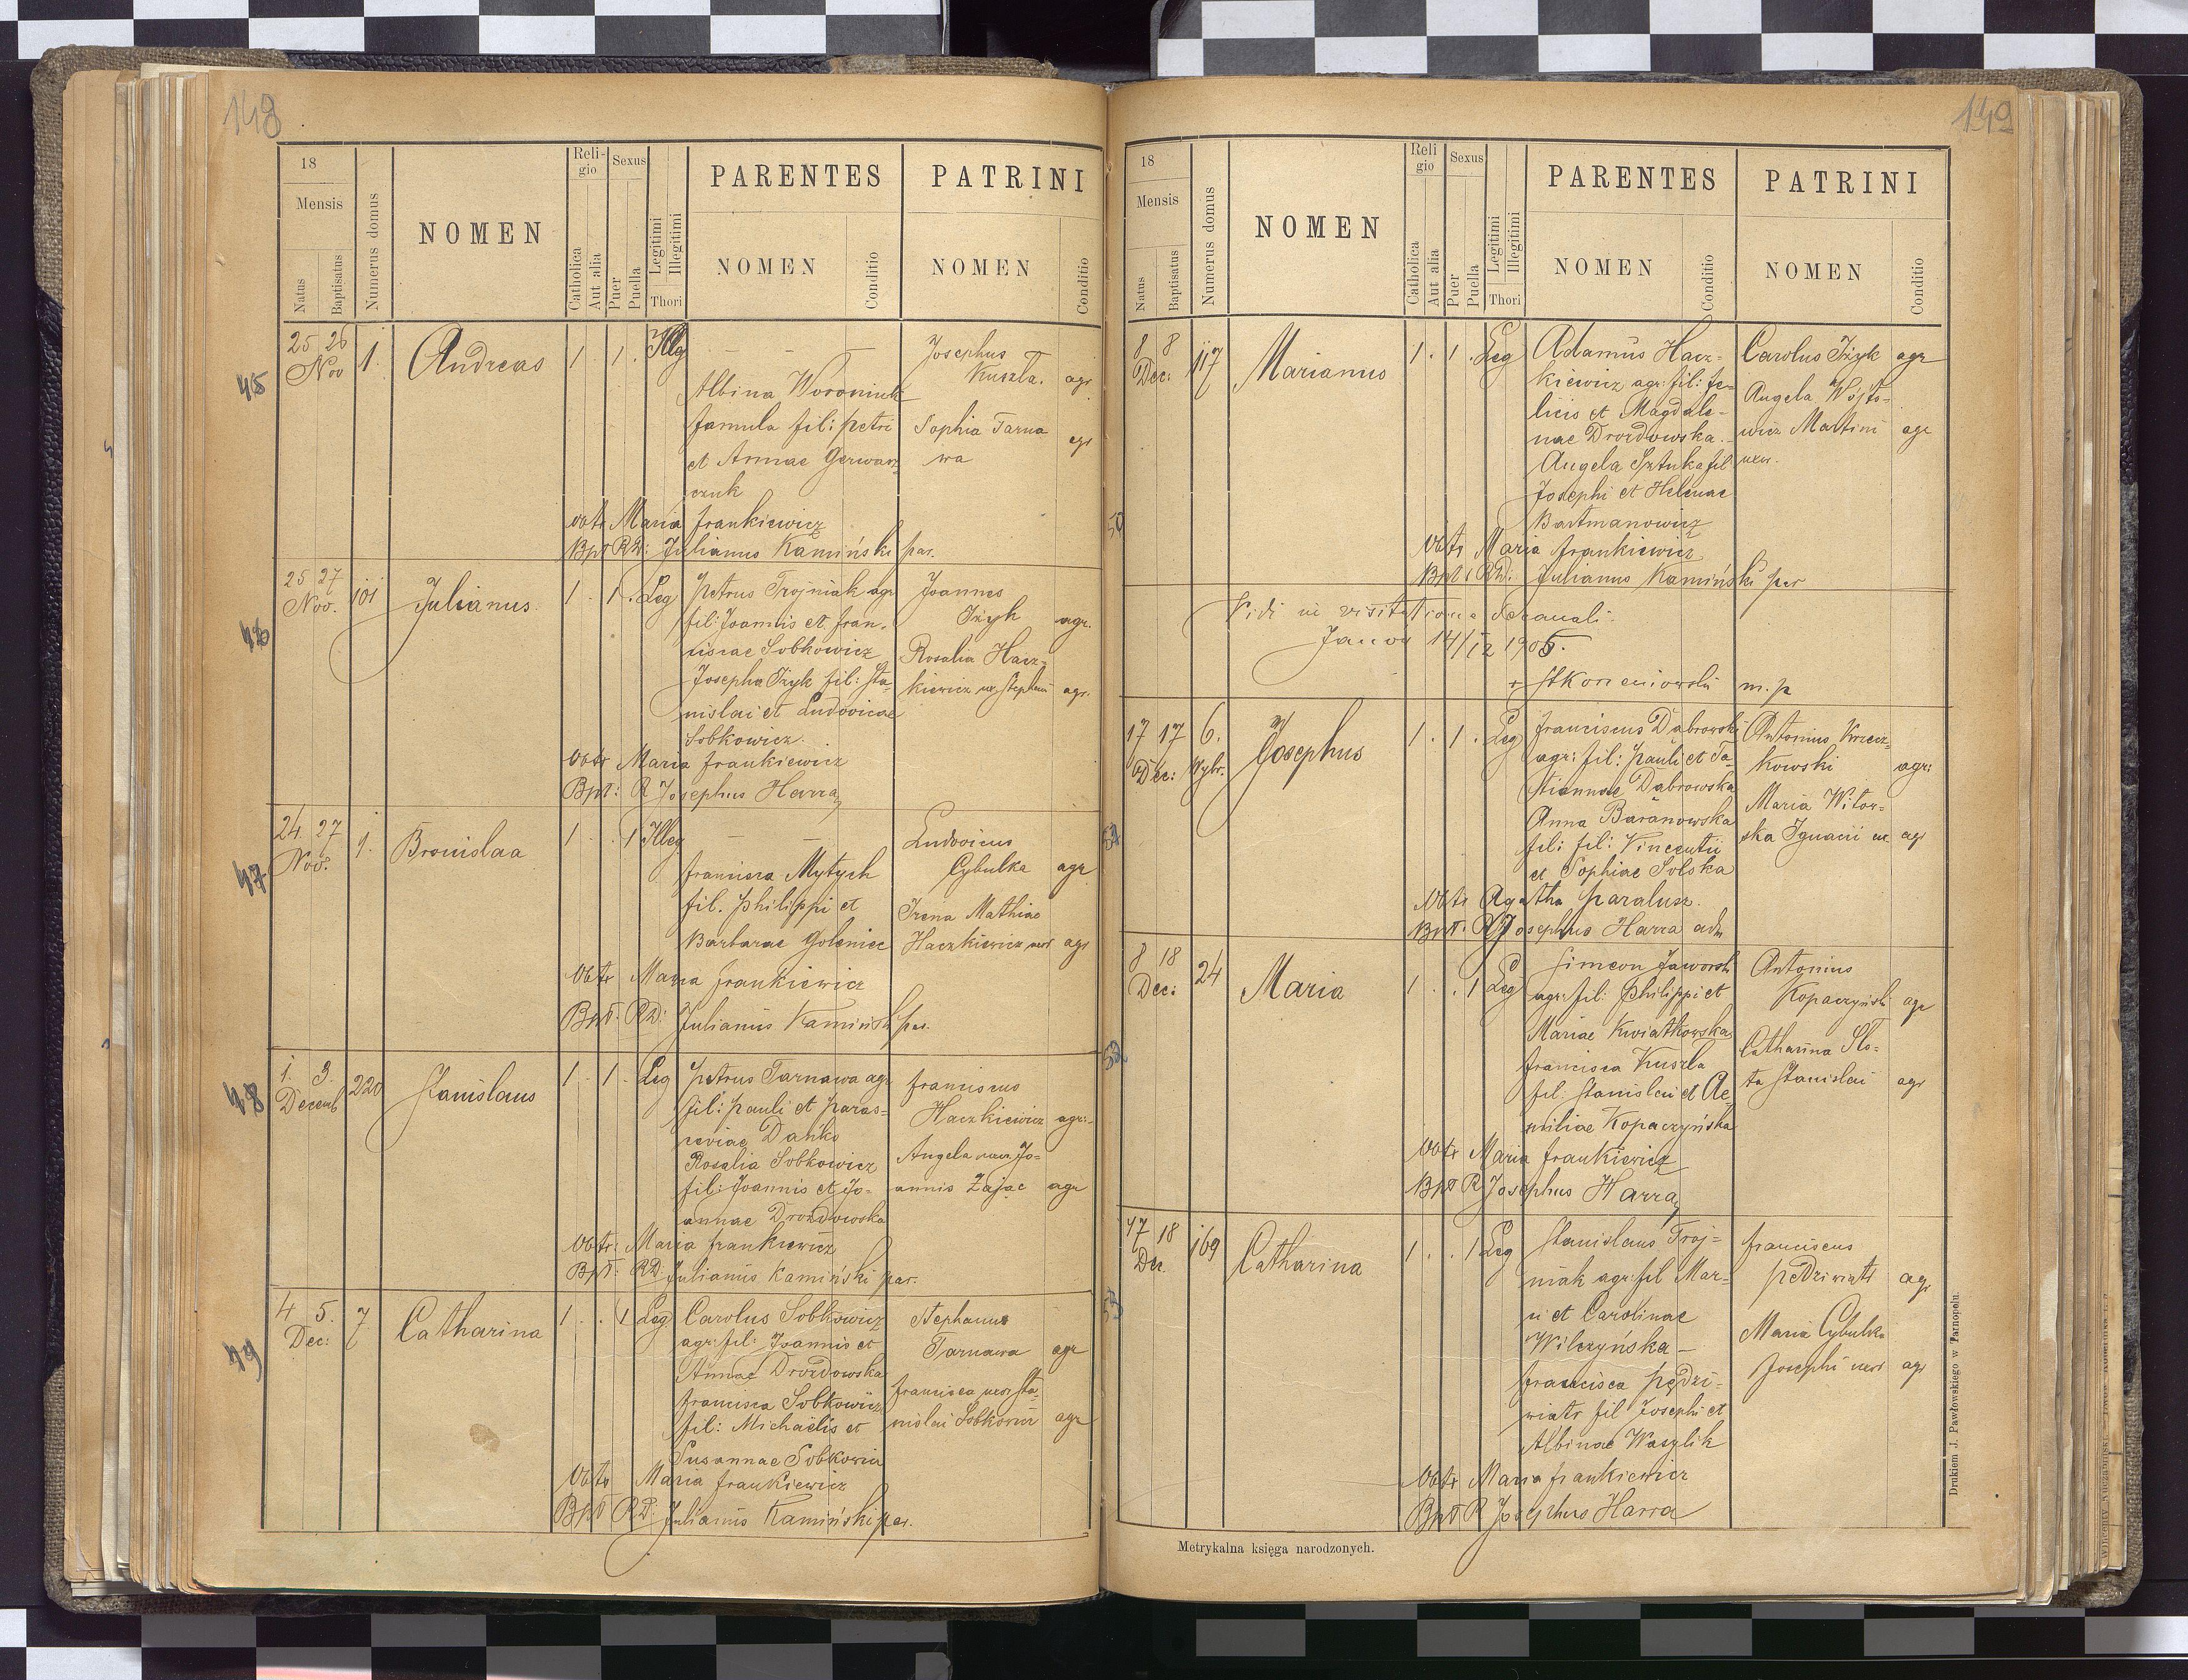 148
18
Mensis
Natus
Baptisatus
Numerus domus
NOMEN
Reli-
gio
Catholica
Aut alia
Sexus
Puer
Puella
Legitimi
Illegitimi
Thori
PARENTES
NOMEN
Conditio
PATRINI
NOMEN
Conditio
45
25 26
Nov
1.
Andreas
1 . 1 . Illeg
— — —
Albina Woroniuk
famula fil: Petri
et Annae Gerwas
czuk
Josephus
Kuszla. agr
Sophia Tarna
wa agr
Obtr Maria Frankiewicz
Bpt RD: Julianus Kamiński par.
46
25 27
Nov.
101
Julianus.
1 . 1 . Leg
Petrus Trojniak agr
fil: Joannis et Fran-
ciscae Sobkowicz
Josepha Iżyk fil: Sta-
nislai et Ludovicae
Sobkowicz.
Joannes
Iżyk agr.
Rosalia Hacz-
kiewicz ux Stephani agr.
Obtr Maria Frankiewicz
Bpt: R Josephus Harra
47
24. 27
Nov.
1.
Bronislaa
1 . . 1 Illeg
— —
Francisca Mytych
fil. Philippi et
Barbarae Goleniec
Ludovicus
Cybulka agr
Irena Mathiae
Haczkiewicz uxor agr
Obtr Maria Frankiewicz
Bpt. RD: Julianus Kamiński par.
48
1. 3.
Decemb
220
Stanislaus
1 . 1 . Leg
Petrus Tarnawa agr
fil: Pauli et Paras-
ceviae Dańko
Rosalia Sobkowicz
fil: Joannis et Jo-
annae Drozdowska
Franciscus
Haczkiewicz agr:
Angela uxor Jo-
annis Zając agr
Obtr: Maria Frankiewicz
Bpt: RD Julianus Kamiński par.
49
4 5.
Dec:
7
Catharina
1 . . 1 Leg
Carolus Sobkowicz
agr: fil: Joannis et
Annae Drozdowska
Francisca Sobkowicz
fil: Michaelis et
Susannae Sobkowicz
Stephanus
Tarnawa agr
Francisca uxor Sta-
nislai Sobkowicz agr
Obtr Maria Frankiewicz
Bpt RD: Julianus Kamiński par.
149
18
Mensis
Natus
Baptisatus
Numerus domus
NOMEN
Reli
gio
Catholica
Aut alia
Sexus
Puer
Puella
Legitimi
Illegitimi
Thori
PARENTES
NOMEN
Conditio
PATRINI
NOMEN
Conditio
50
8 8
Dec:
117
Marianus
1 . 1 . Leg
Adamus Hacz-
kiewicz agr: fil: Fe-
licis et Magdale-
nae Drozdowska.
Angela Sztuka fil
Josephi et Helenae
Bartmanowicz
Carolus Iżyk agr
Angela Wójto-
wicz Martini agr
uxor.
Obtr Maria Frankiewicz
Bpt: RD. Julianus Kamiński par
Vidi in visitatione decanali.
Janów 14/12 1905.
+ Korzeniowski m. p
51
17 17
Dec:
6.
Wybr.
Josephus
1 . 1 . Leg
Franciscus Dąbrowski
agr: fil: Pauli et Ta-
tiannae Dąbrowska
Anna Baranowska
fil: fil: Vincentii
et Sophiae Solska
Antonius Krzecz-
kowski agr:
Maria Witor-
ska Ignacii ux agr
Obtr Agatha Paralusz.
Bpt. R Josephus Harra adm
52
8 18
Dec:
24
Maria
1 . . 1 Leg
Simeon Jaworski
agr: fil: Philippi et
Mariae Kwiatkowska
Francisca Kuszla
fil: Stanislai et Ae-
miliae Kopaczyńska
Antonius
Kopaczyński agr
Catharina Slo-
ta Stanislai agr
Obtr Maria Frankiewicz
Bpt R Josephus Harra
53
17 18
Dec.
169
Catharina
1 . . 1 Leg
Stanislaus Troj-
niak agr: fil Mar-
ci et Carolinae
Wilczyńska —
Francisca Pędzi-
wiatr fil Josephi et
Albinae Wasylik
Franciscus
Pędziwiatr agr
Maria Cybulka
Josephi uxor agr
Obtr Maria Frankiewicz
Bpt R Josephus Harra
Metrykalna księga narodzonych.
Drukiem J. Pawłowskiego w Tarnopolu.